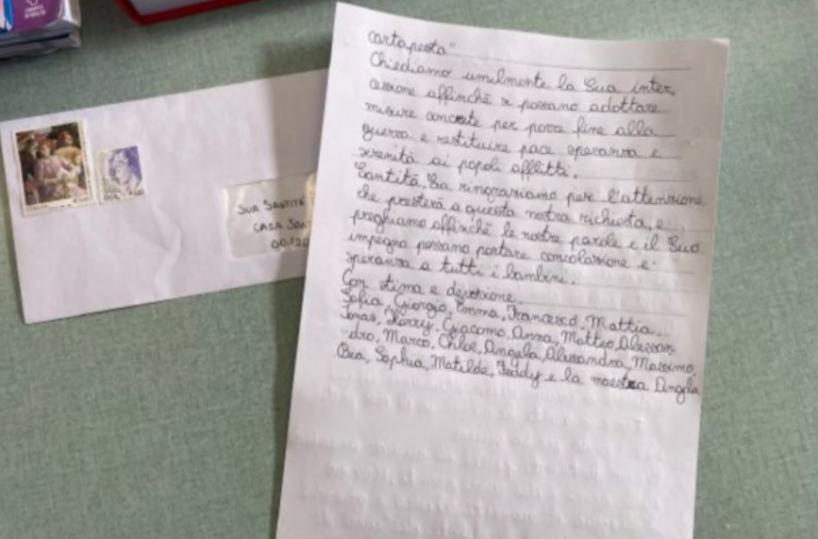 cartapesta"
Chiediamo umilmente la Sua inter
cessione affinché si possano adottare
misure concrete per porre fine alla
guerra e restituire pace speranza e
serenità ai popoli afflitti.
Santità, La ringraziamo per l'attenzione
che presterà a questa nostra richiesta, e
preghiamo affinché le nostre parole e il Suo
impegno possano portare consolazione e
speranza a tutti i bambini.
Con stima e devozione
Sofia, Giorgio, Emma, Francesco, Mattia
Jonas, Harry, Giacomo, Anna, Matteo, Alessan
dro, Marco, Chloe, Angela, Alexandra, Massimo,
Bea, Sophia, Matilde, Teddy e la maestra Angela
SUA SANTITÀ
CASA SAN
00120